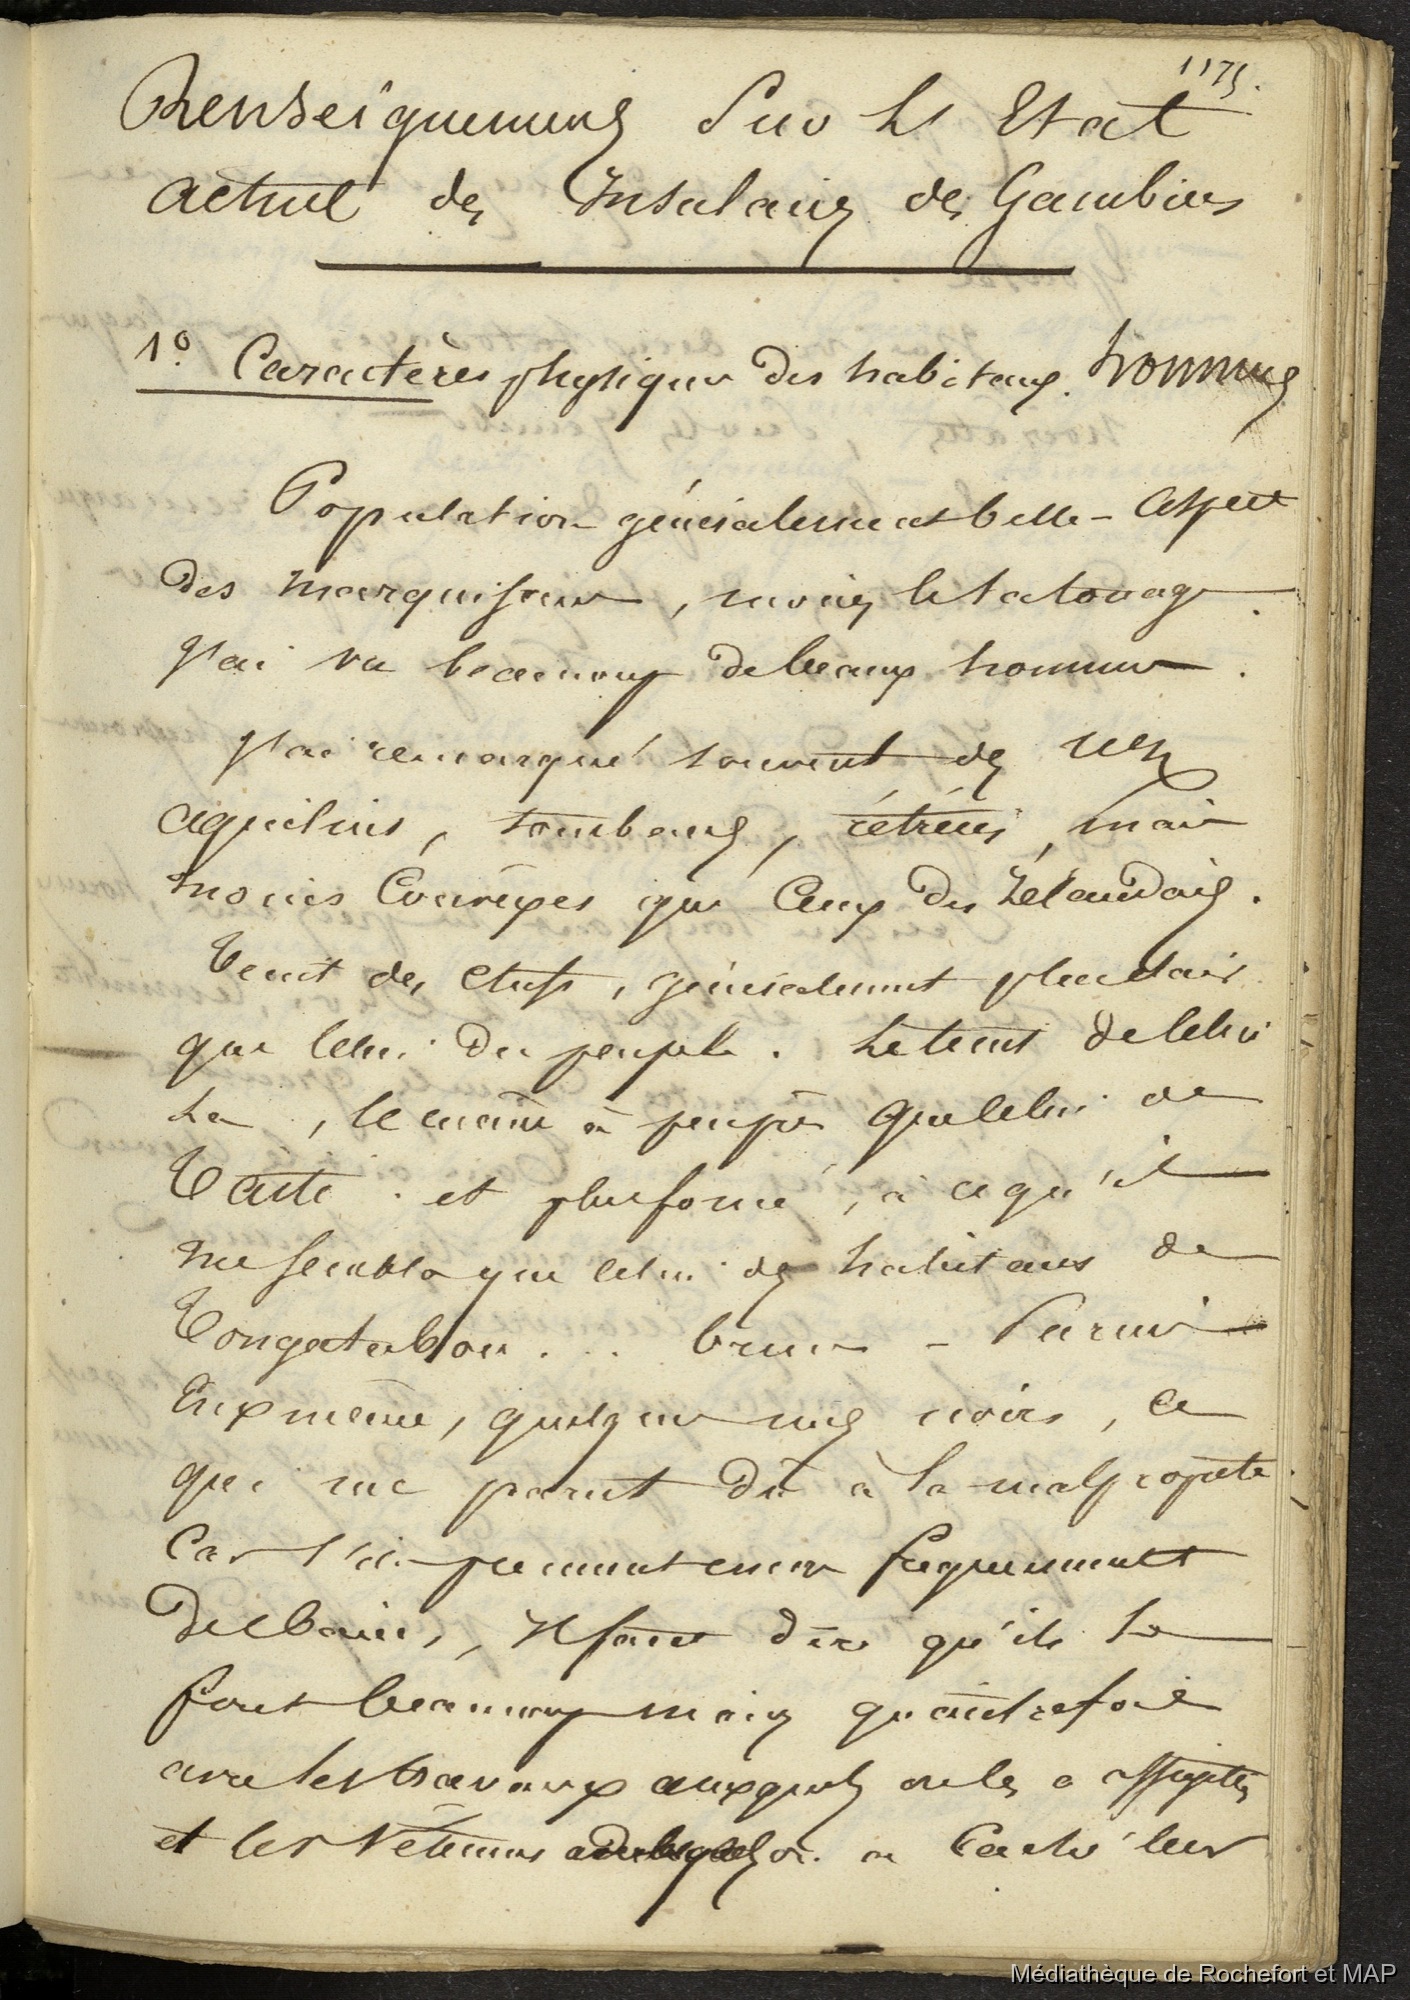 1175.
Renseignemens sur les Etat
actuel des Insulaires des Gambiers
1° Caractères physiques des habitans. hommes
Population généralement belle - aspect
des marquisiens, moins le tatouage.
J'ai vu beaucoup de beaux hommes.
J'ai remarqué souvent des nez
aquilins, tombans, rétrécis, mais
moins convexes que ceux des Zélandais.
Teint des chefs, généralement plus clair
que celui du peuple. Le teint de celui
là, le même à peu près que celui de
Taïti. et plus foncé, à ce qu'il
me sembla que celui des habitans de
Tongatabou... brun - Parmi
eux même, quelques uns noirs, ce
qui me parut dû à la malpropreté
Car s'ils prennent encore fréquemment
des bains, Il faut dire qu'ils le
font beaucoup moins qu'autrefois
avec les travaux auxquels on les a assujettis
et les vêtemens desquels on a caché leur
Médiathèque de Rochefort et MAP